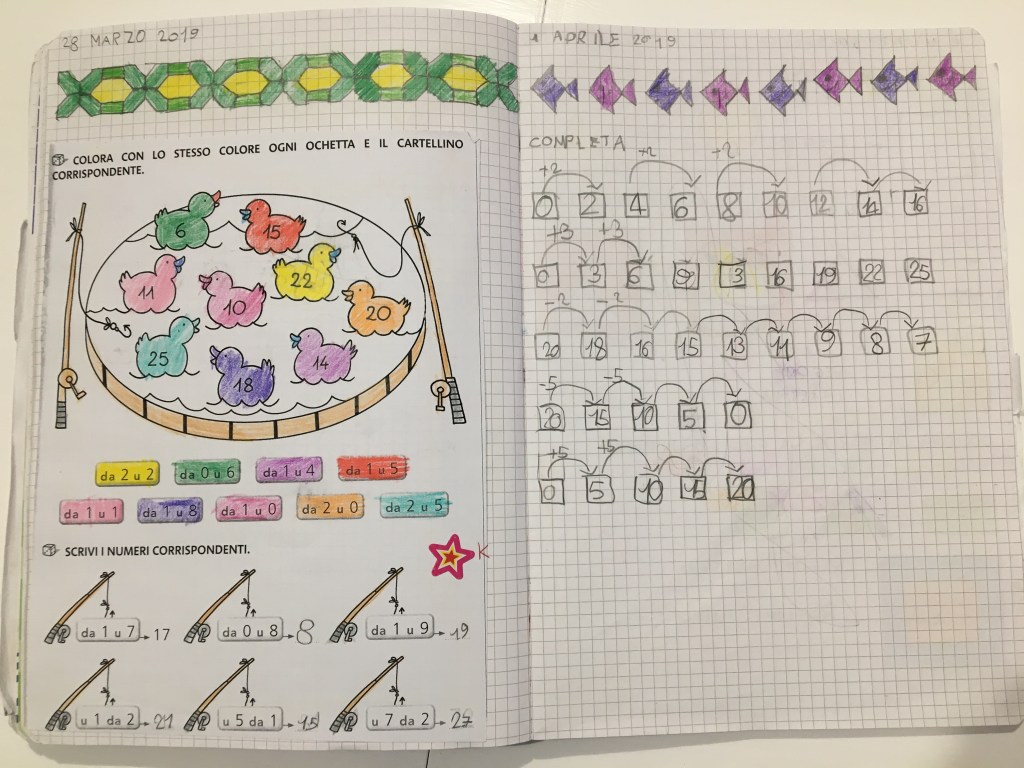 28 MARZO 2019
COLORA CON LO STESSO COLORE OGNI OCHETTA E IL CARTELLINO
CORRISPONDENTE.
6 15
11 10 22 20
25 18 14
da 2 u 2 da 0 u 6 da 1 u 4 da 1 u 5
da 1 u 1 da 1 u 8 da 1 u 0 da 2 u 0 da 2 u 5
SCRIVI I NUMERI CORRISPONDENTI.
K
da 1 u 7 17 da 0 u 8 8 da 1 u 9 19
u 1 da 2 21 u 5 da 1 15 u 7 da 2 27
1 APRILE 2019
CONPLETA
+2 +2 +2
0 2 4 6 8 10 12 14 16
+3 +3
0 3 6 9 13 16 19 22 25
-2 -2
20 18 16 15 13 11 9 8 7
-5 -5
20 15 10 5 0
+5 +5
0 5 10 15 20